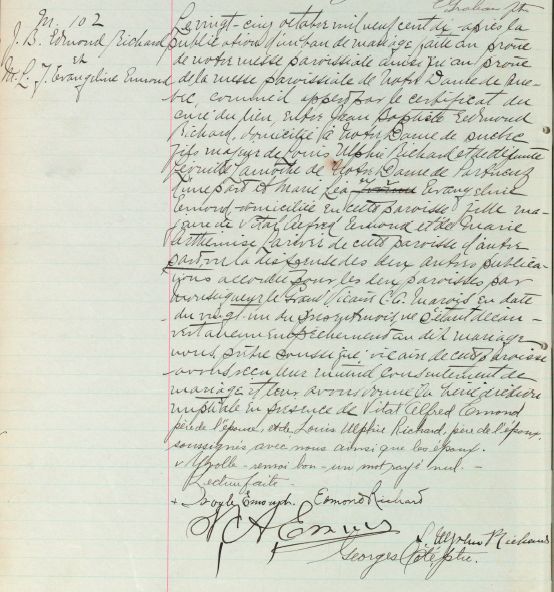 M. 102
J. B. Edmond Richard
et
M. L. J. Evangeline Emond
Le vingt-cinq octobre mil neuf cent dix après la
publication d'un ban de mariage faite au prône
de notre messe paroissiale ainsi qu'au prône
de la messe paroissiale de Notre Dame de Qué-
bec, comme il appert par le certificat du
curé du lieu, entre Jean Baptiste Edmond
Richard, domicilié à Notre Dame de Québec
fils majeur de Louis Ulphie Richard et de défunte
Lamothe de Notre Dame de Portneuf
d'une part et Marie Léa Evangeline
Emond domiciliée en cette paroisse, fille ma-
jeure de Vital Alfred Emond et de Marie
Arthémise de cette paroisse d'autre
part, vu la dispense des deux autres publica-
tions accordée pour les deux paroisses par
Monseigneur le Grand Vicaire C. A. Marois en date
du vingt-un du présent mois, ne s'étant décou-
vert aucun empêchement au dit mariage
nous prêtre soussigné, vicaire de cette paroisse
avons reçu leur mutuel consentement de
mariage et leur avons donné la bénédiction
nuptiale en présence de Vital Alfred Emond
père de l'épouse, et de Louis Ulphie Richard, père de l'époux,
soussignés avec nous ainsi que les époux.
renvoi bon - un mot rayé nul. -
Lecture faite -
Emond. Edmond Richard
V A Emond
L. Ulphie Richard
Georges Côté Ptre.